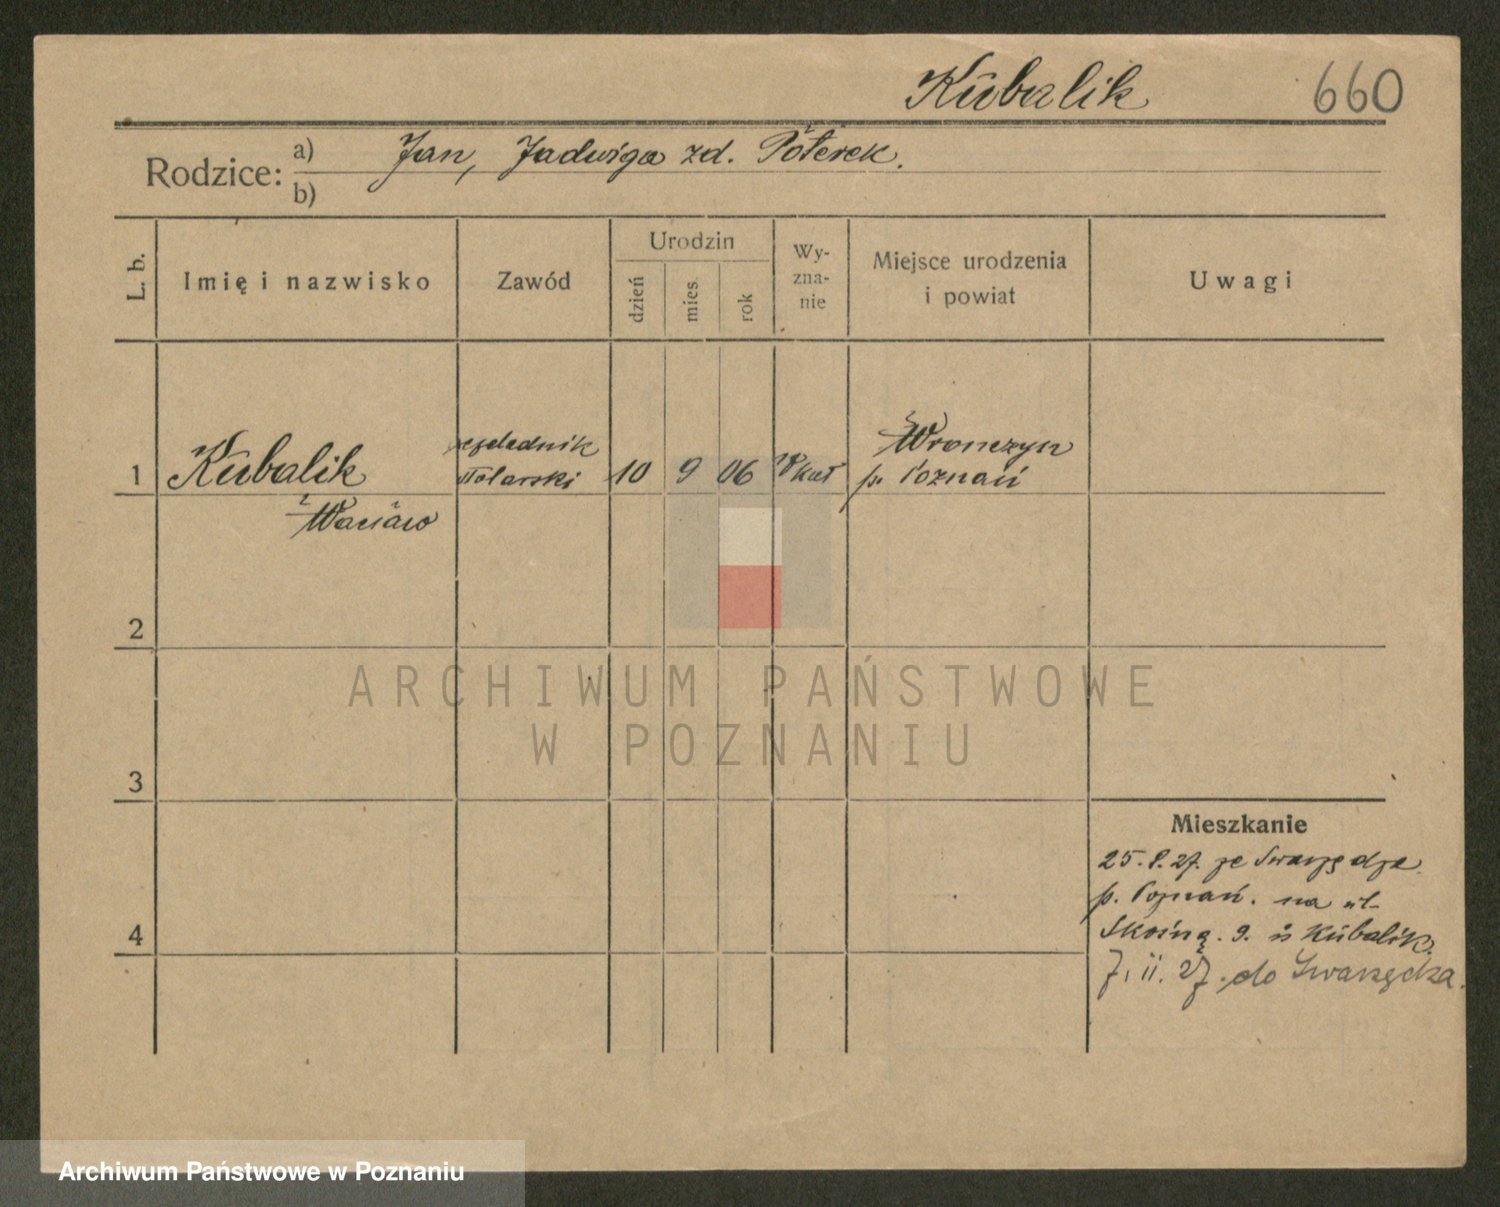 Kubalik 660
Rodzice: a) Jan, Jadwiga zd. Poterek.
b)
L. b. Imię i nazwisko Zawód Urodzin dzień mies. rok Wy-zna-nie Miejsce urodzenia i powiat Uwagi
1 Kubalik czeladnik stolarski 10 9 06 kat Wronczyn p. Poznań
Wacław
2
ARCHIWUM PAŃSTWOWE
W POZNANIU
3
Mieszkanie
25.8.27. ze Swarzędza
p. Poznań. na ul.
4 Skośną. 9. u Kubalik.
7. 11. 27. do Swarzędza.
Archiwum Państwowe w Poznaniu